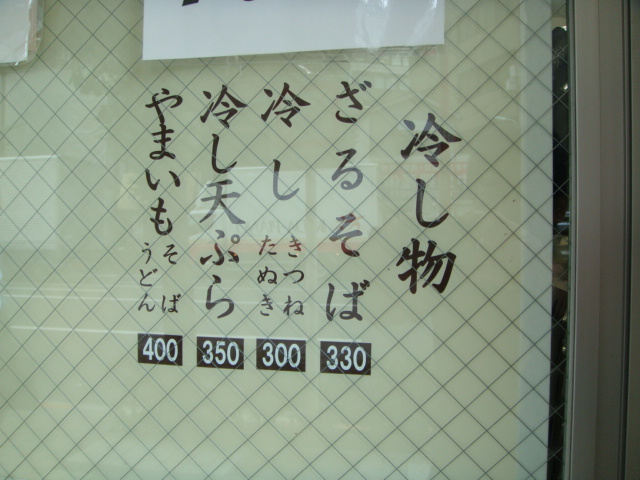 冷し物
ざるそば
330
冷し
きつね
たぬき
300
冷し天ぷら
350
やまいも
そば
うどん
400